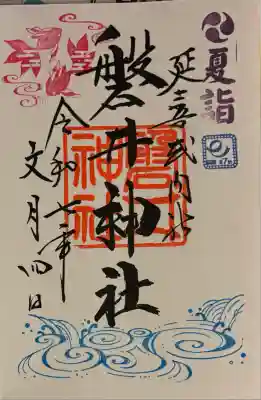 夏詣
延喜式内社
磐井神社
磐井神社
令和七年
文月四日